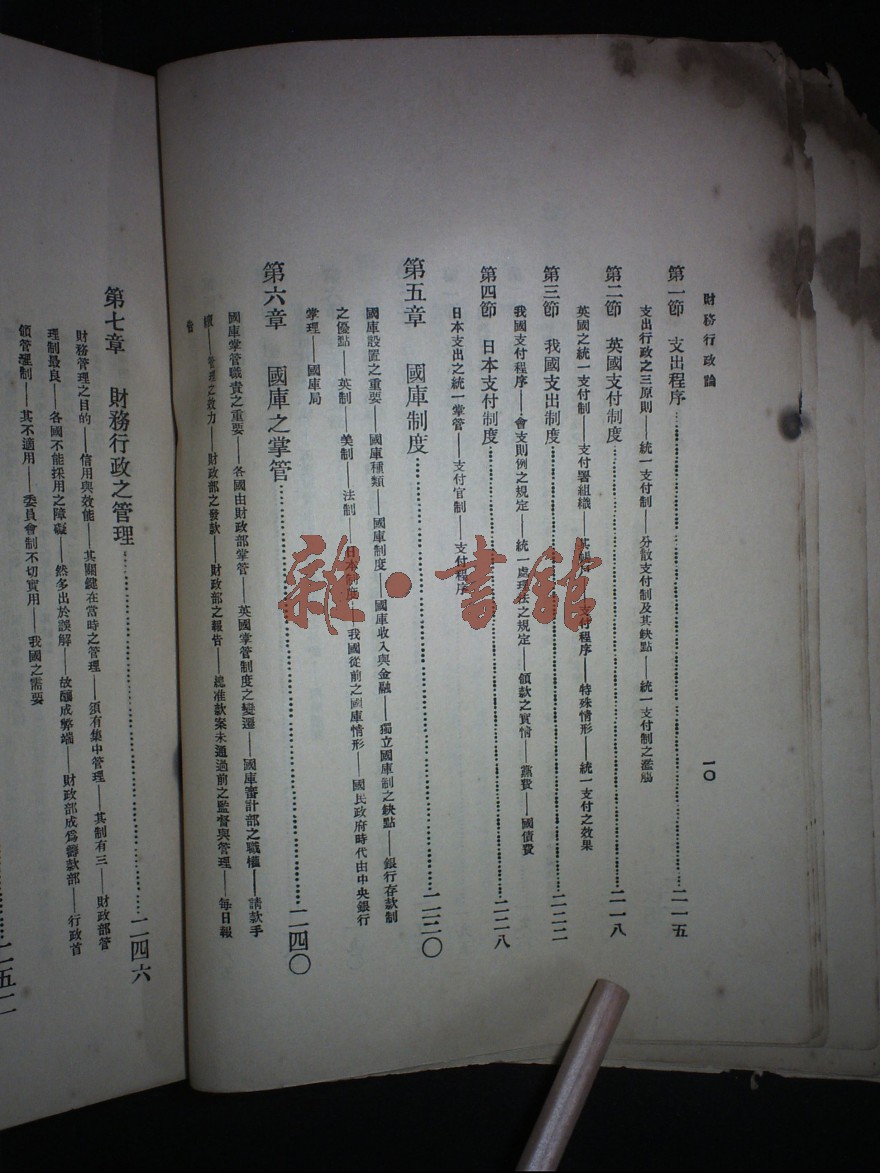 財務行政論
一〇
第一節 支出程序…………二一五
支出行政之三原則——統一支付制——分散支付制及其缺點——統一支付制之濫觴
第二節 英國支付制度…………二一八
英國之統一支付制——支付署組織——其 支付程序——特殊情形——統一支付之效果
第三節 我國支出制度…………二二二
我國支付程序——會支則例之規定——統一處理法之規定——領款之實情——黨費——國債費
第四節 日本支付制度…………二二八
日本支出之統一掌管——支付官制——支付程序
第五章 國庫制度…………二三〇
國庫設置之重要——國庫種類——國庫制度——國庫收入與金融——獨立國庫制之缺點——銀行存款制
之優點——英制——美制——法制——日本 我國從前之國庫情形——國民政府時代由中央銀行
掌理——國庫局
第六章 國庫之掌管…………二四〇
國庫掌管職責之重要——各國由財政部掌管——英國掌管制度之變遷——國庫審計部之職權——請款手
續——管理之效力——財政部之發款——財政部之報告——總准款案未通過前之監督與管理——每日報
告
第七章 財務行政之管理…………二四六
財務管理之目的——信用與效能——其關鍵在當時之管理——須有集中管理——其制有三——財政部管
理制最良——各國不能採用之障礙——然多出於誤解——故釀成弊端——財政部成爲籌款部——行政首
領管理制——其不適用——委員會制不切實用——我國之需要
二五二
雜·書館